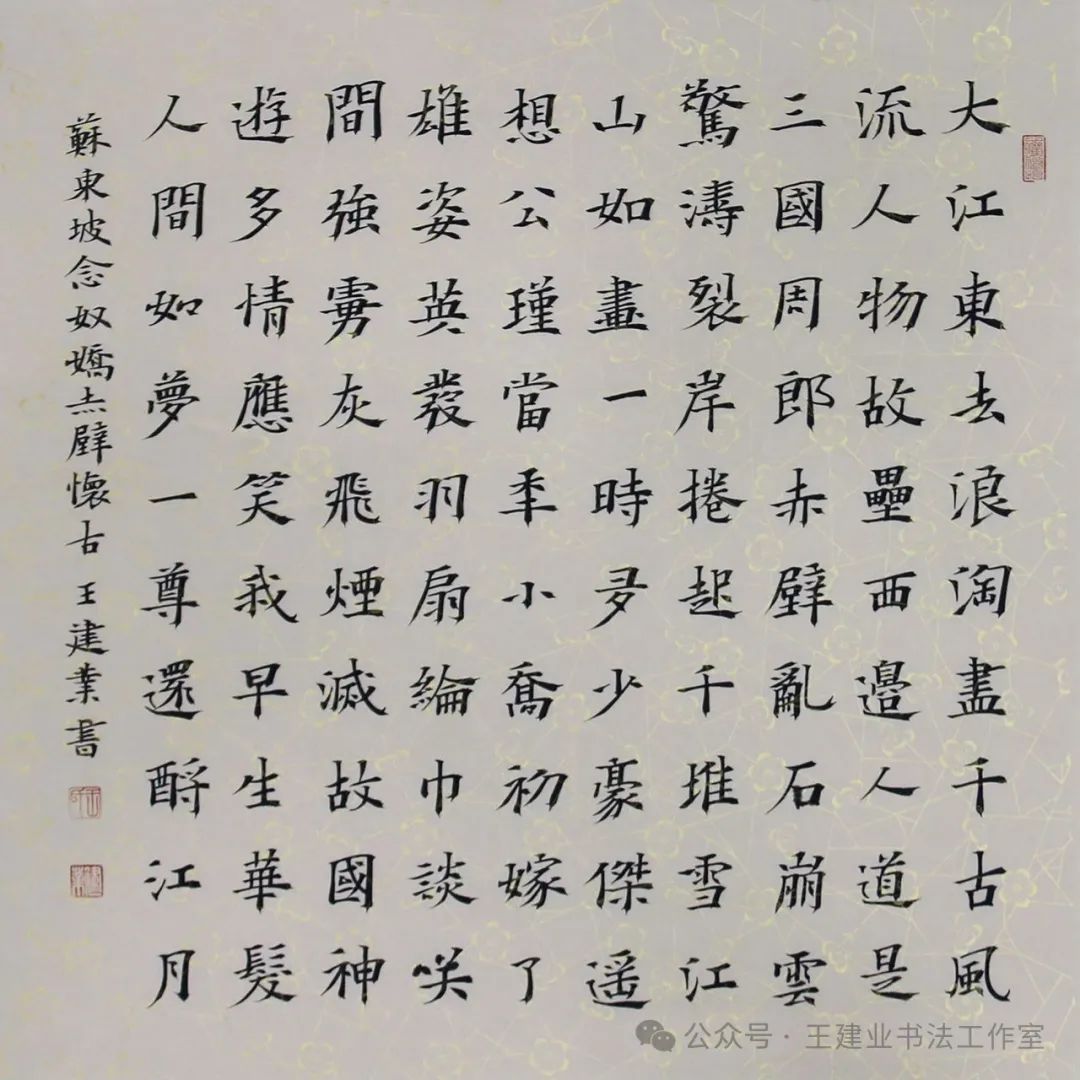 大江東去浪淘盡千古風
流人物故壘西邊人道是
三國周郎赤壁亂石崩雲
驚濤裂岸捲起千堆雪江
山如畫一時多少豪傑遥
想公瑾當秊小喬初嫁了
雄姿英發羽扇綸巾談咲
間強虜灰飛煙滅故國神
遊多情應笑我早生華髮
人間如夢一尊還酹江月
蘇東坡念奴嬌赤壁懷古 王建業書
公众号·王建业书法工作室